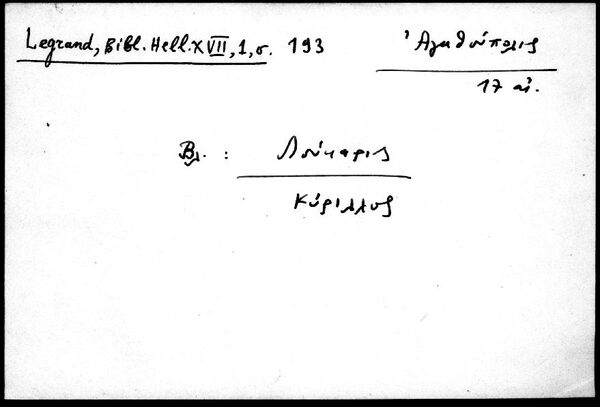 Legrand, Bibl. Hell. XVII, 1, σ. 193
Ἀγαθούπολις
17 αἰ.
Βλ. :
Λούκαρις
Κύριλλος